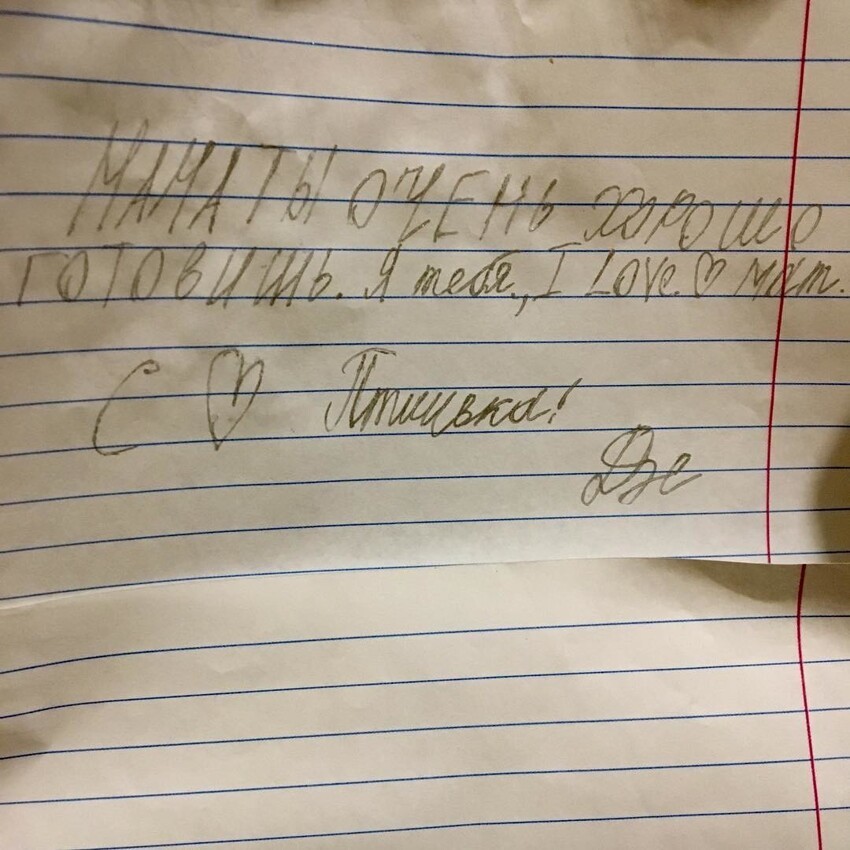 МАМА ТЫ ОЧЕНЬ ХОРОШО
ГОТОВИШЬ. Я тебя., I Love ♡ мат.
С ♡ Птицька!